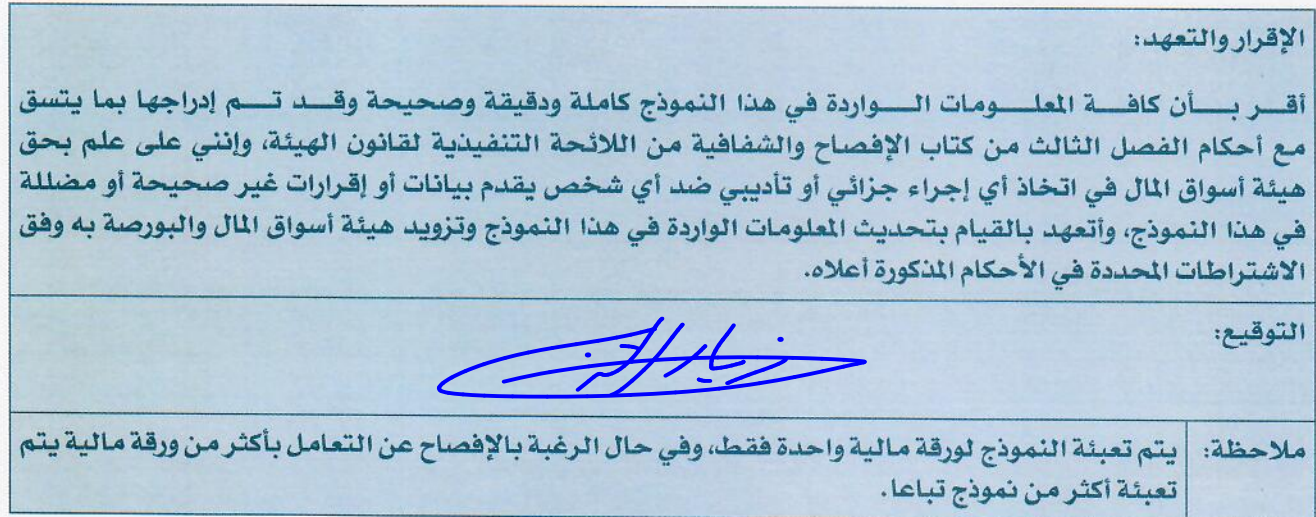 الإقرار والتعهد:
أقــر بــأن كافــة المعلــومات الــواردة في هذا النموذج كاملة ودقيقة وصحيحة وقــد تــم إدراجها بما يتسق
مع أحكام الفصل الثالث من كتاب الإفصاح والشفافية من اللائحة التنفيذية لقانون الهيئة، وإنني على علم بحق
هيئة أسواق المال في اتخاذ أي إجراء جزائي أو تأديبي ضد أي شخص يقدم بيانات أو إقرارات غير صحيحة أو مضللة
في هذا النموذج، وأتعهد بالقيام بتحديث المعلومات الواردة في هذا النموذج وتزويد هيئة أسواق المال والبورصة به وفق
الاشتراطات المحددة في الأحكام المذكورة أعلاه.
التوقيع:
ملاحظة: يتم تعبئة النموذج لورقة مالية واحدة فقط، وفي حال الرغبة بالإفصاح عن التعامل بأكثر من ورقة مالية يتم
تعبئة أكثر من نموذج تباعا.